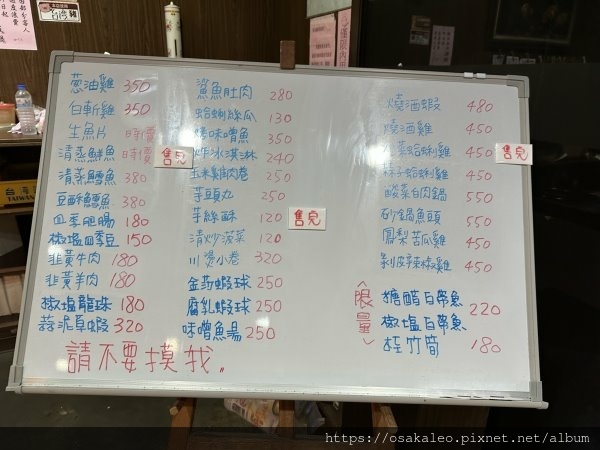 蔥油雞 350
白斬雞 350
生魚片 時價
清蒸鮮魚 時價
清蒸鱈魚 380
豆酥鱈魚 380
四季肥腸 180
椒塩四季豆 150
韭黃牛肉 180
韭黃羊肉 180
椒塩龍珠 180
蒜泥草蝦 320
請不要摸我。
售完
鯊魚肚肉 280
蛤蜊絲瓜 130
烤味噌魚 350
炸冰淇淋 240
玉米雞肉卷 250
芋頭丸 250
芋絲酥 120
清炒菠菜 120
川燙小卷 320
金莎蝦球 250
腐乳蝦球 250
味噌魚湯 250
售完
燒酒蝦 480
燒酒雞 450
蛤蜊雞 450
蛤蜊雞 450
酸菜白肉鍋 550
砂鍋魚頭 550
鳳梨苦瓜雞 450
剝皮辣椒雞 450
售完
限量
糖醋白帶魚
椒塩白帶魚
220
桂竹筍 180
台灣豬
TAIWAN
https://osakaleo.pixnet.net/album